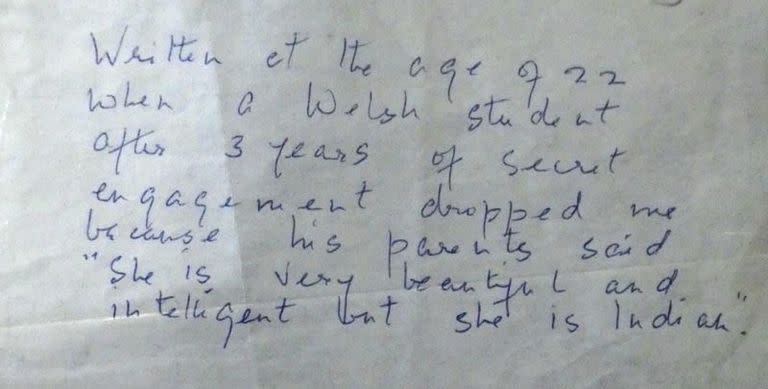 Written at the age of 22
when a Welsh student
after 3 years of secret
engagement dropped me
because his parents said
"She is very beautiful and
intelligent but she is Indian".